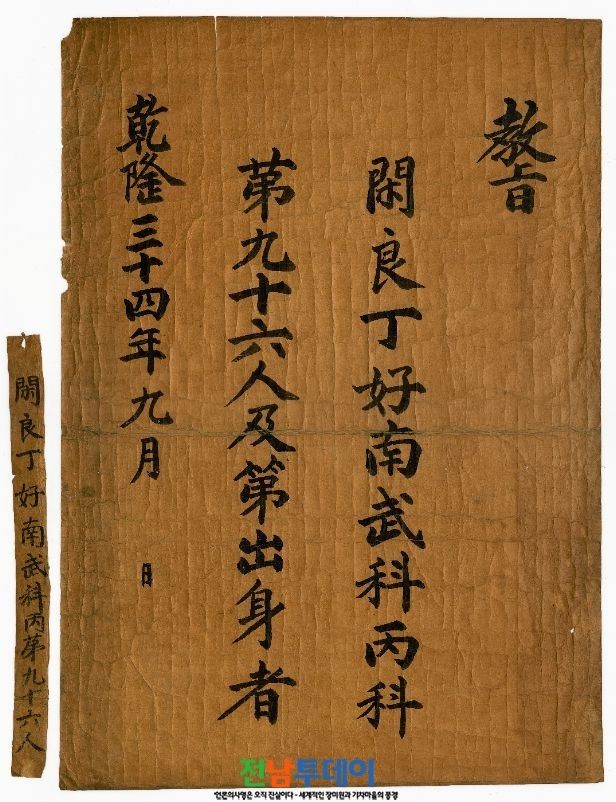 教旨
閑良丁好南武科丙科
第九十六人及第出身者
乾隆三十四年九月 日
閑良丁好南武科丙第九十六人
전남투데이
언론의사명은 오직 진실이다 - 세계적인 장미원과 기차마을의 풍경